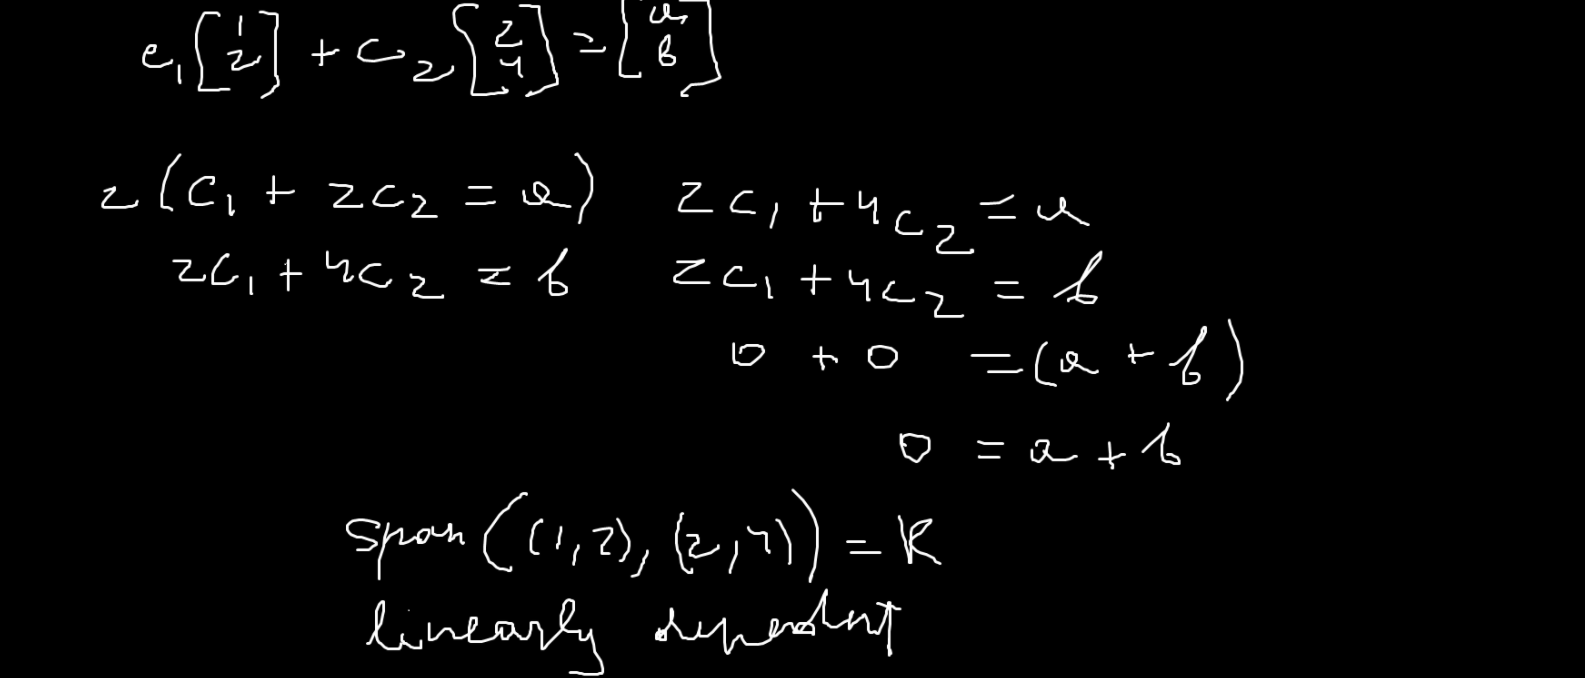 c₁[1 2] + c₂[2 4] = [a b]
2(c₁ + 2c₂ = a) 2c₁ + 4c₂ = a
2c₁ + 4c₂ = b 2c₁ + 4c₂ = b
0 + 0 = (a + b)
0 = a + b
span((1,2), (2,4)) = R
linearly dependent